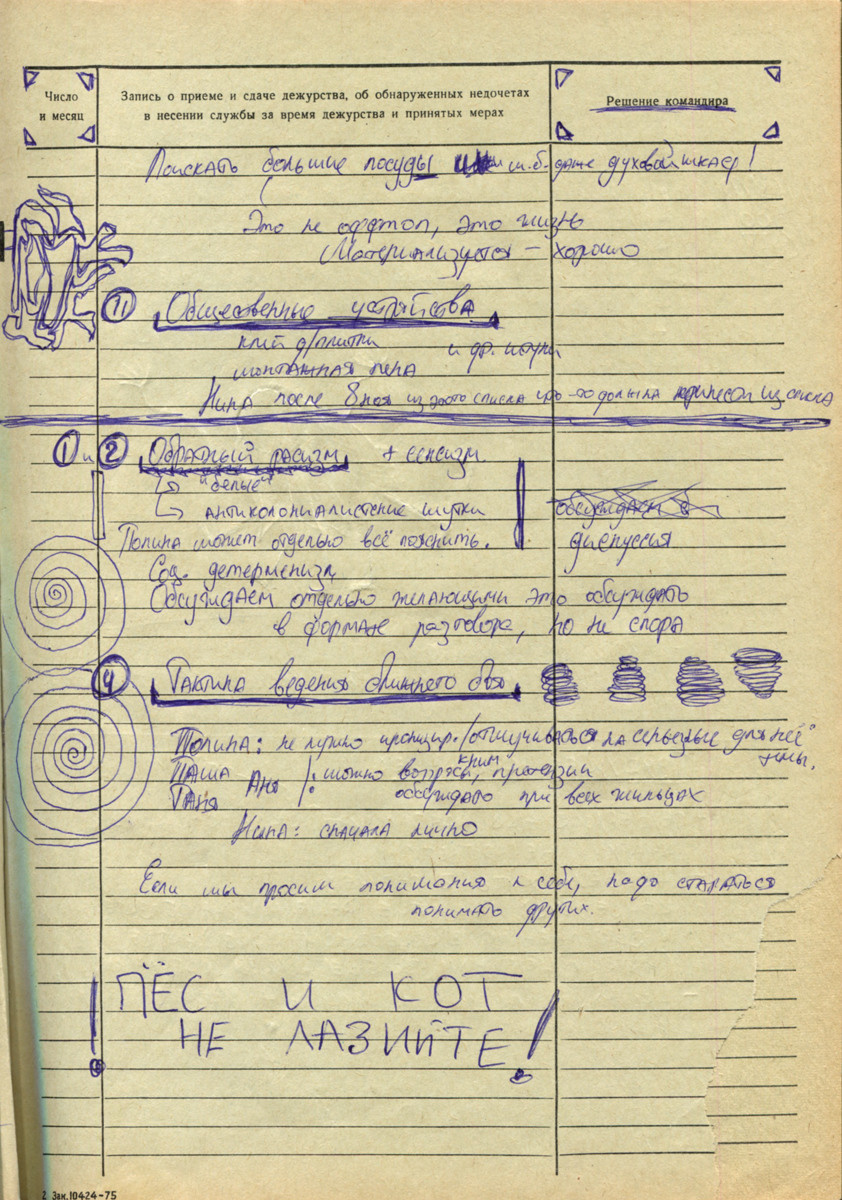 Число
и месяц
Запись о приеме и сдаче дежурства, об обнаруженных недочетах
в несении службы за время дежурства и принятых мерах
Решение командира
Поискать большие посуды и м.б. даже духовой шкаф!
Это не оффтоп, это жизнь
Материализуется – хорошо
11 Общественные устройства
клей д/плитки
и др. штуки
монтажная пена
Нина после 8 ноя из этого списка что-то должна принести из списка
1 и 2 Обратный расизм + сексизм
↳ "белые"
↳ антиколониалистские шутки
обсуждаем
Полина может отдельно всё пояснить.
дискуссия
Соц. детерменизм
Обсуждаем отдельно желающими это обсуждать
в формате разговора, но не спора
4 Тактика ведения ближнего боя
Полина: не нужно иронизир./отшучиваться на серьезные для неё темы.
Паша
Таня
Аня
: можно вопросы, крит, претензии
обсуждать при всех жильцах
Нина: сначала лично
Если мы просим понимания к себе, надо стараться
понимать других.
ПЁС И КОТ
НЕ ЛАЗИЙТЕ!
2 Зак.10424-75